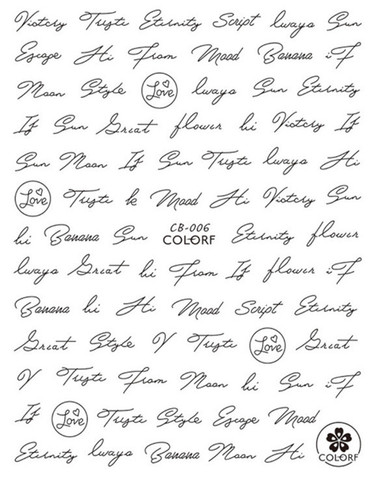 Victory Triste Eternity Script lways Sun
Escape Hi From Mood Banana if
Moon Style Love lways Sun Eternity
If Sun Great flower hi Victory If
Sun Moon If Sun Triste lways Hi
Love Triste k Mood Hi Victory Sun
hi Banana Sun CB-006 COLORF Eternity flower
lways Great hi From If flower if
Banana hi Hi Mood Script Eternity
Great Style V Triste Love Great
V Triste From Moon hi Sun if
If Love Triste Style Escape Mood
Eternity lways Banana Moon Hi COLORF